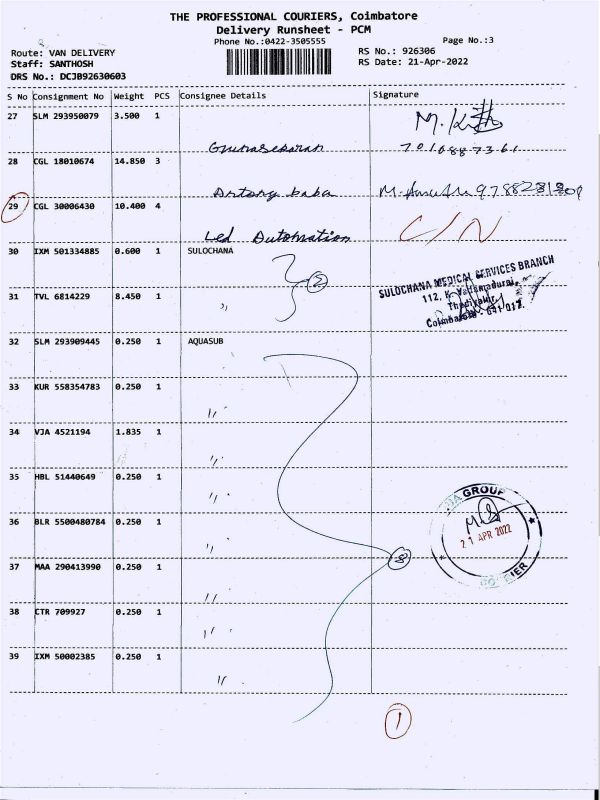 THE PROFESSIONAL COURIERS, Coimbatore
Delivery Runsheet - PCM
Phone No.:0422-3505555
Page No.:3
Route: VAN DELIVERY
RS No.: 926306
Staff: SANTHOSH
RS Date: 21-Apr-2022
DRS No.: DCJB92630603
S No Consignment No Weight PCS Consignee Details Signature
27 SLM 293950079 3.500 1
Gunasekaran 7010887361
28 CGL 18010674 14.850 3
Antony baba 9788231309
29 CGL 30006430 10.400 4
Led Automation C/N
30 IXM 501334885 0.600 1 SULOCHANA
2
SULOCHANA MEDICAL SERVICES BRANCH
31 TVL 6814229 8.450 1
112,
〃
Coimbatore - 641 017.
32 SLM 293909445 0.250 1 AQUASUB
33 KUR 558354783 0.250 1
〃
34 VJA 4521194 1.835 1
〃
35 HBL 51440649 0.250 1
〃
GROUP
36 BLR 5500480784 0.250 1
21 APR 2022
〃
8
37 MAA 290413990 0.250 1
〃
38 CTR 709927 0.250 1
〃
39 IXM 50002385 0.250 1
〃
1